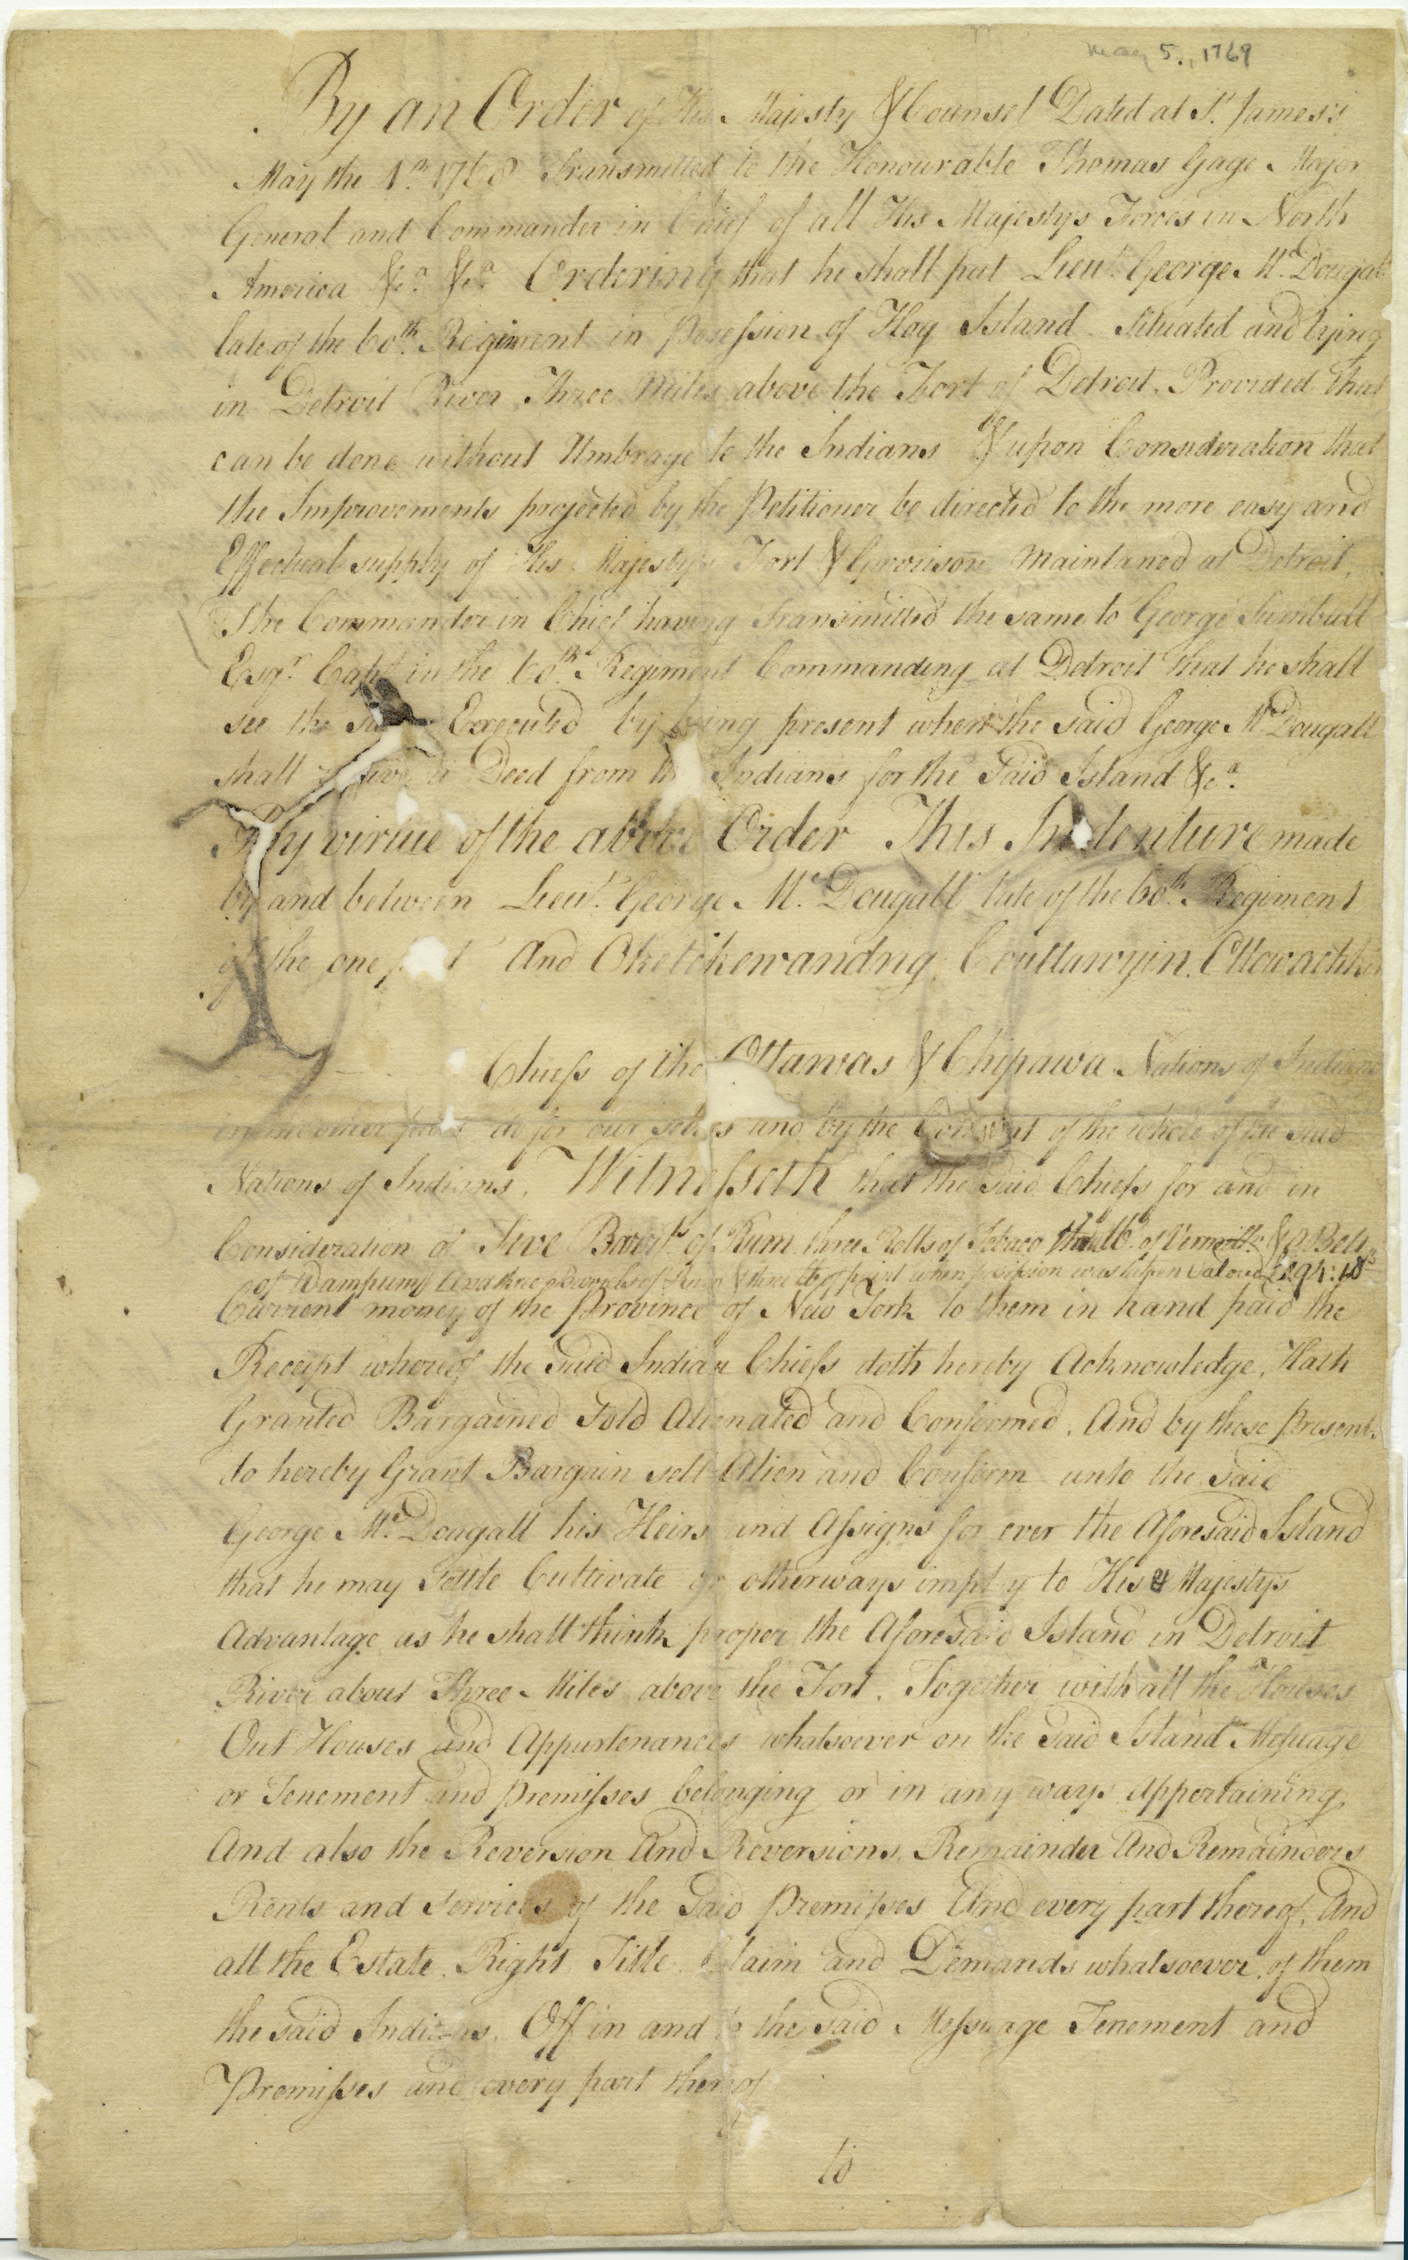 May 5, 1769
By an Order of His Majesty & Counsel Dated at St. James's
May the 1st. 1768 Transmitted to the Honourable Thomas Gage Major
General and Commander in Chief of all His Majestys Forces in North
America &ca. &ca. Ordering that he shall put Lieut. George McDougall
late of the 60th. Regiment in Possession of Hog Island Situated and lying
in Detroit River Three Miles above the Fort of Detroit, Provided that
can be done without Umbrage to the Indians & upon Consideration that
the Improvements projected by the Petitioner be directed to the more easy and
Effectual supply of His Majestys Fort & Garrison Maintaned at Detroit.
The Commander in Chief having Transmitted the same to George Turnbull
Esqr. Capt. in the 60th. Regiment Commanding at Detroit that he shall
see the Executed by being present when the said George McDougall
shall a Deed from the Indians for the Said Island &ca.
By virtue of the above Order This Indenture made
by and between Lieut. George McDougall late of the 60th. Regiment
of the one part And Oketchewandng, Couttawyin, Ottowachkin
Chiefs of the Ottawas & Chipawa Nations of Indians
do for our selves and by the Consent of the whole of the said
Nations of Indians, Witnesseth that the Said Chiefs for and in
Consideration of Five Barrils of Rum three Rolls of Tobaco three lb. of Vermillo & a Belt
of Wampum And three Barrels of Rum & three lb of paint when possession was taken Valued £194:10s
Current money of the Province of New York to them in hand paid the
Receipt whereof the Said Indian Chiefs doth hereby Acknowledge, Hath
Granted Bargained Sold Alienated and Confirmed, And by these Presents
do hereby Grant Bargain sell Alien and Confirm unto the Said
George McDougall his Heirs and Assigns for ever the Aforesaid Island
that he may Settle Cultivate or otherways imploy to His Majestys
Advantage as he shall think proper the Aforesaid Island in Detroit
River about Three Miles above the Fort. Together with all the Houses
Out Houses and Appurtenances whatsoever on the Said Island Messuage
or Tenement and Premisses belonging or in any ways Appertaining,
And also the Reversion And Reversions, Remainder And Remainders
Rents and Services of the Said Premisses And every part thereof, And
all the Estate, Right, Title, Claim and Demands whatsoever of them
the said Indians, Off in and to the said Messuage Tenement and
Premisses and every part thereof
to